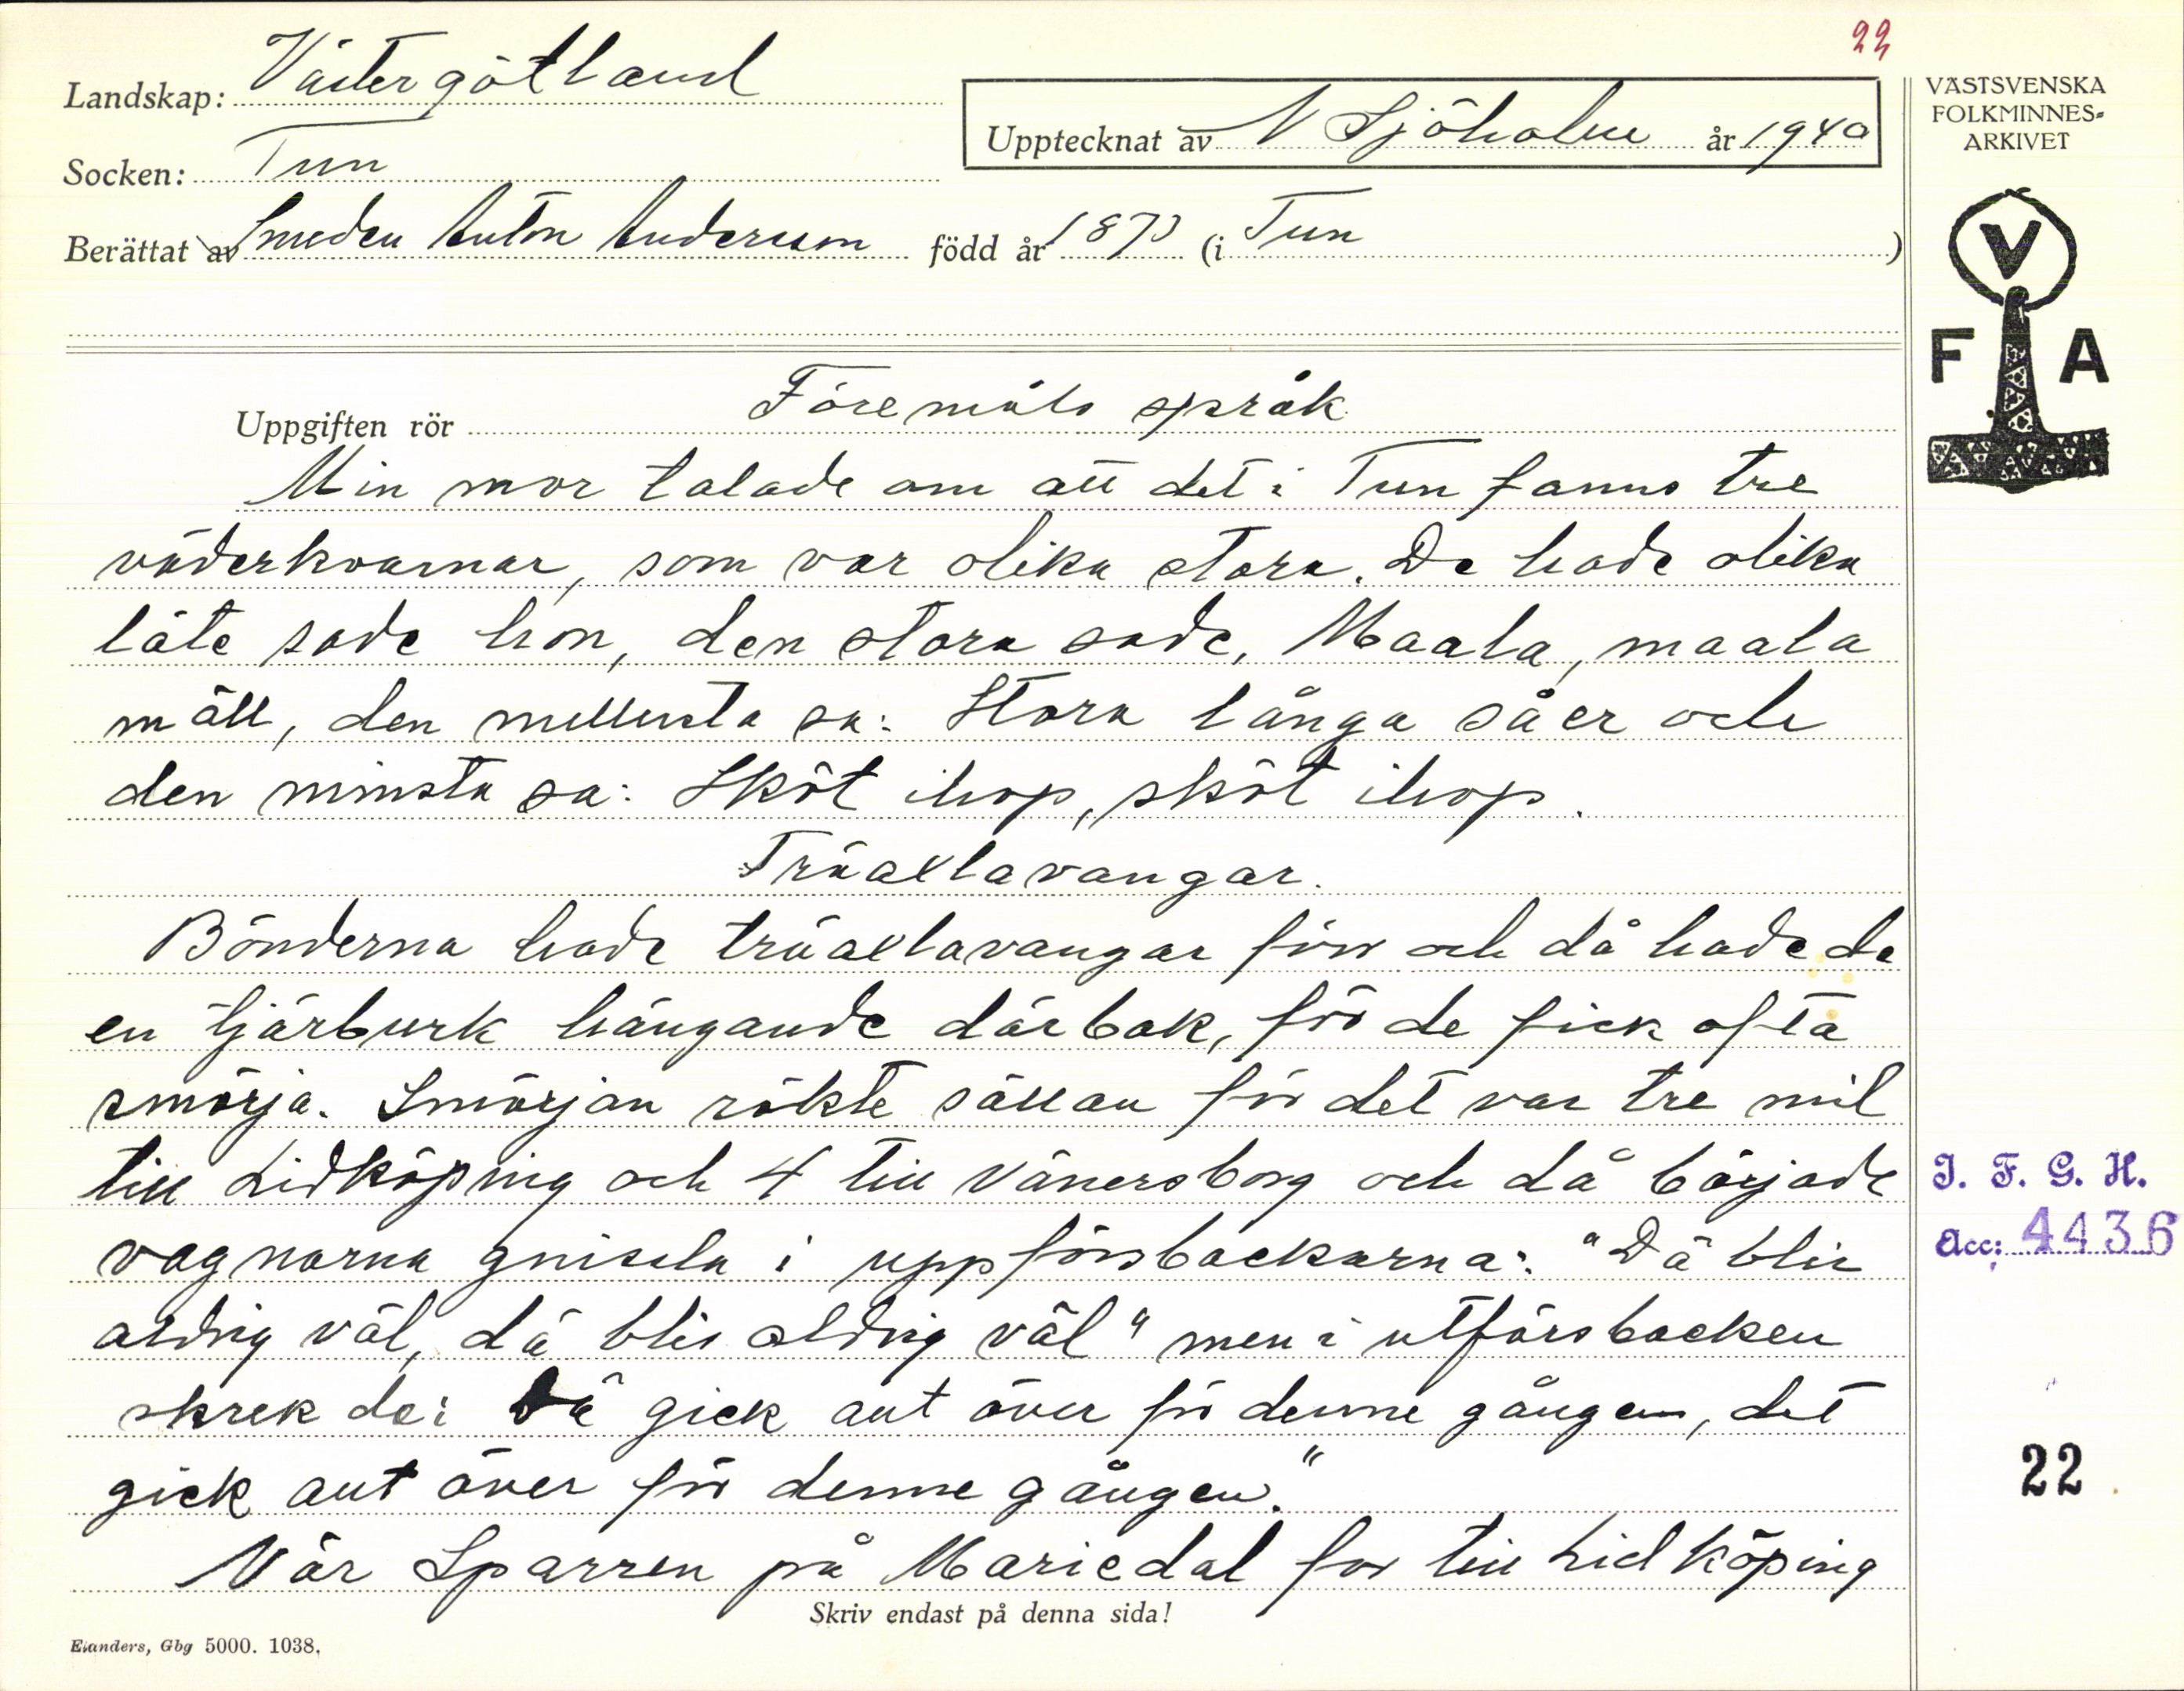 22
Landskap: Västergötland
Upptecknat av N Sjöholm år 1940
Socken: Tun
Berättat av Smeden Anton Andersson född år 1873 (i Tun )
VÄSTSVENSKA
FOLKMINNES-
ARKIVET
V
F A
Uppgiften rör Föremåls språk
Min mor talade om att det i Tun fanns tre
väderkvarnar, som var olika stora. De hade olika
läte sade hon, den stora sade, Maala, maala
mäll, den mellersta sa: Stora långa såer och
den minsta sa: Sköt ihop, sköt ihop.
Träaxlavangar.
Bönderna hade träaxlavangar förr och då hade de
en tjärburk hängande därbak, för de fick ofta
smörja. Smörjan räkte sällan för det var tre mil
till Lidköping och 4 till Vänersborg och då började
vagnarna gnissla i uppförsbackarna: "Dä blir
aldrig väl, dä blir aldrig väl" men i utförsbacken
skrek de: Dä gick ant över för denne gången, det
gick ant över för denne gången."
När Sparren på Mariedal for till Lidköping
Skriv endast på denna sida!
Elanders, Gbg 5000. 1038.
I. F. G. H.
Acc: 4436
22